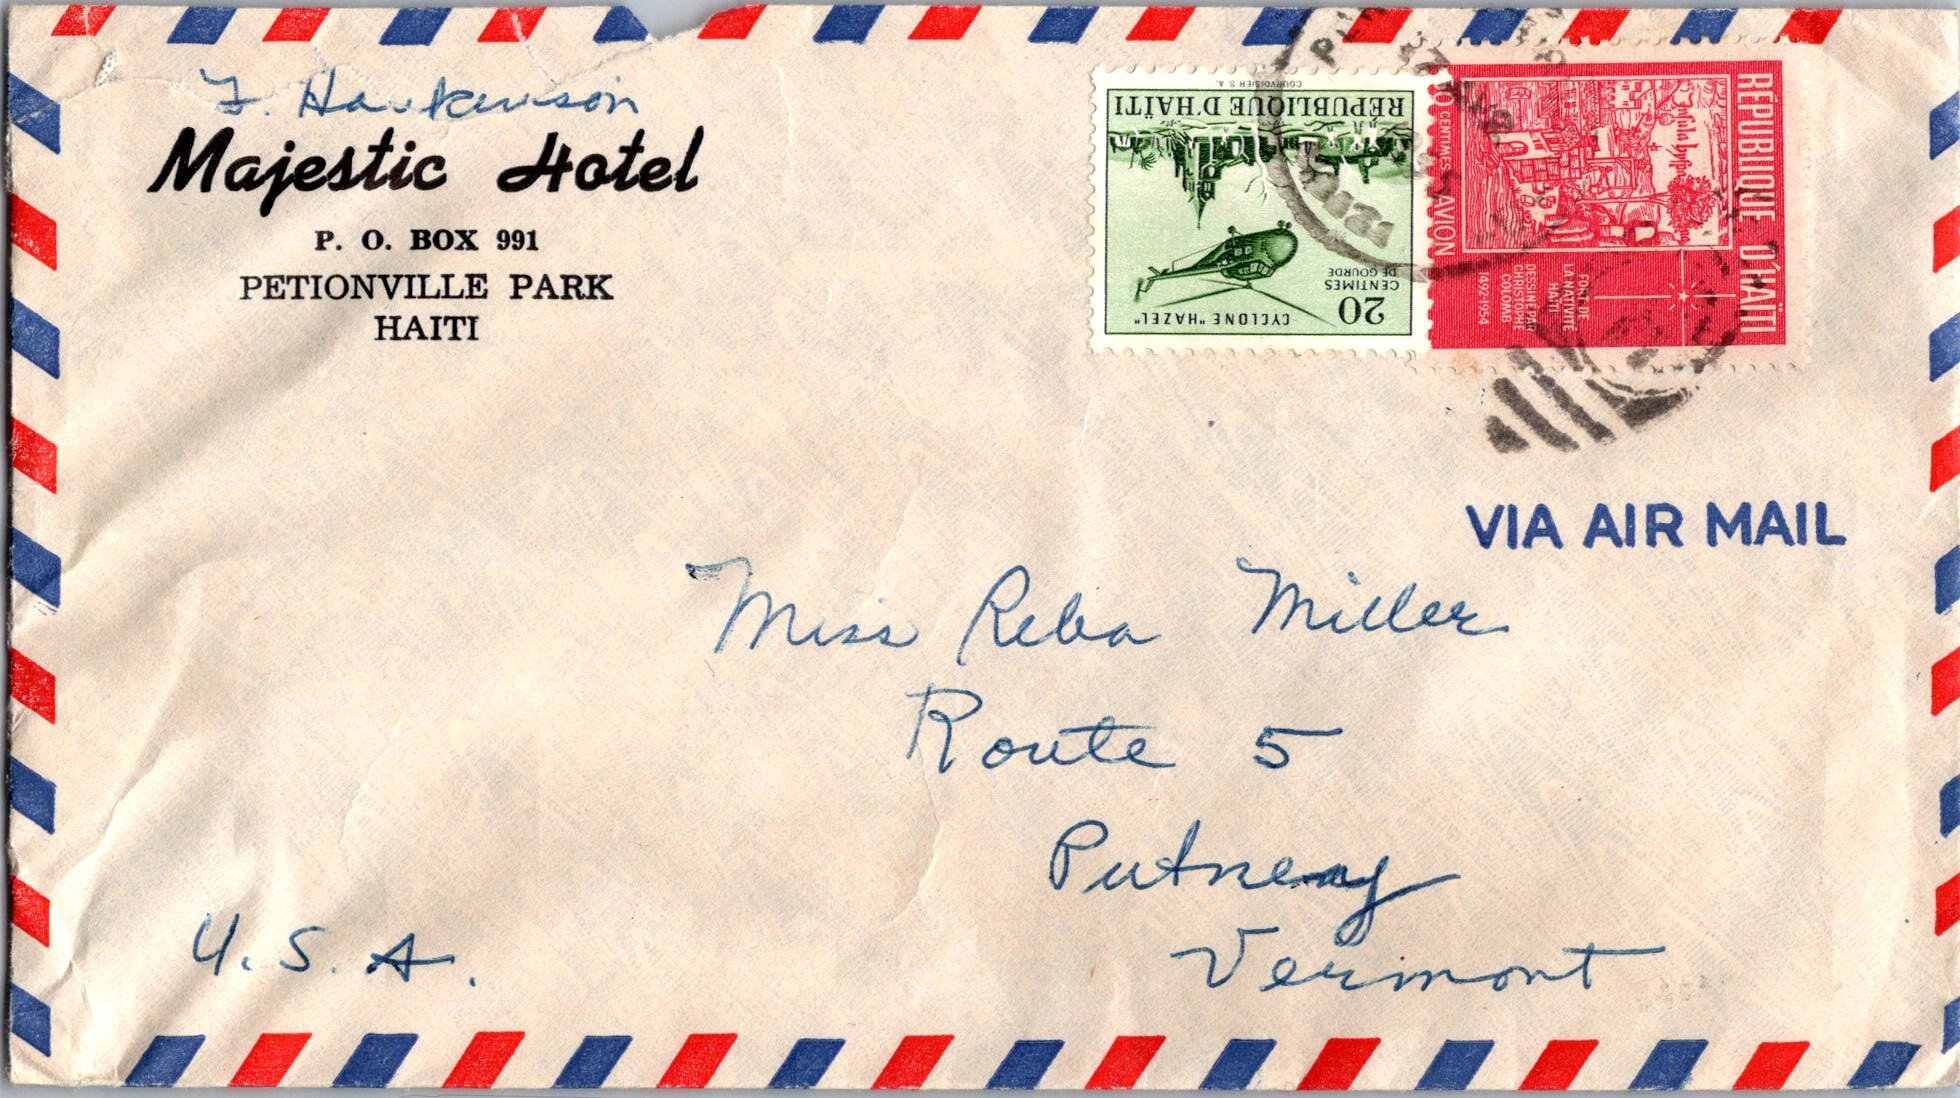 Majestic Hotel
P. O. BOX 991
PETIONVILLE PARK
HAITI
RÉPUBLIQUE D'HAÏTI
COURVOISIER S. A.
20
CENTIMES
DE GOURDE
CYCLONE "HAZEL"
RÉPUBLIQUE D'HAÏTI
CENTIMES
AVION
FORT DE
LA NATIVITÉ
HAITI
DESSINÉ PAR
CHRISTOPHE
COLOMB
1492-1954
VIA AIR MAIL
Miss Reba Miller
Route 5
Putney
Vermont
U.S.A.